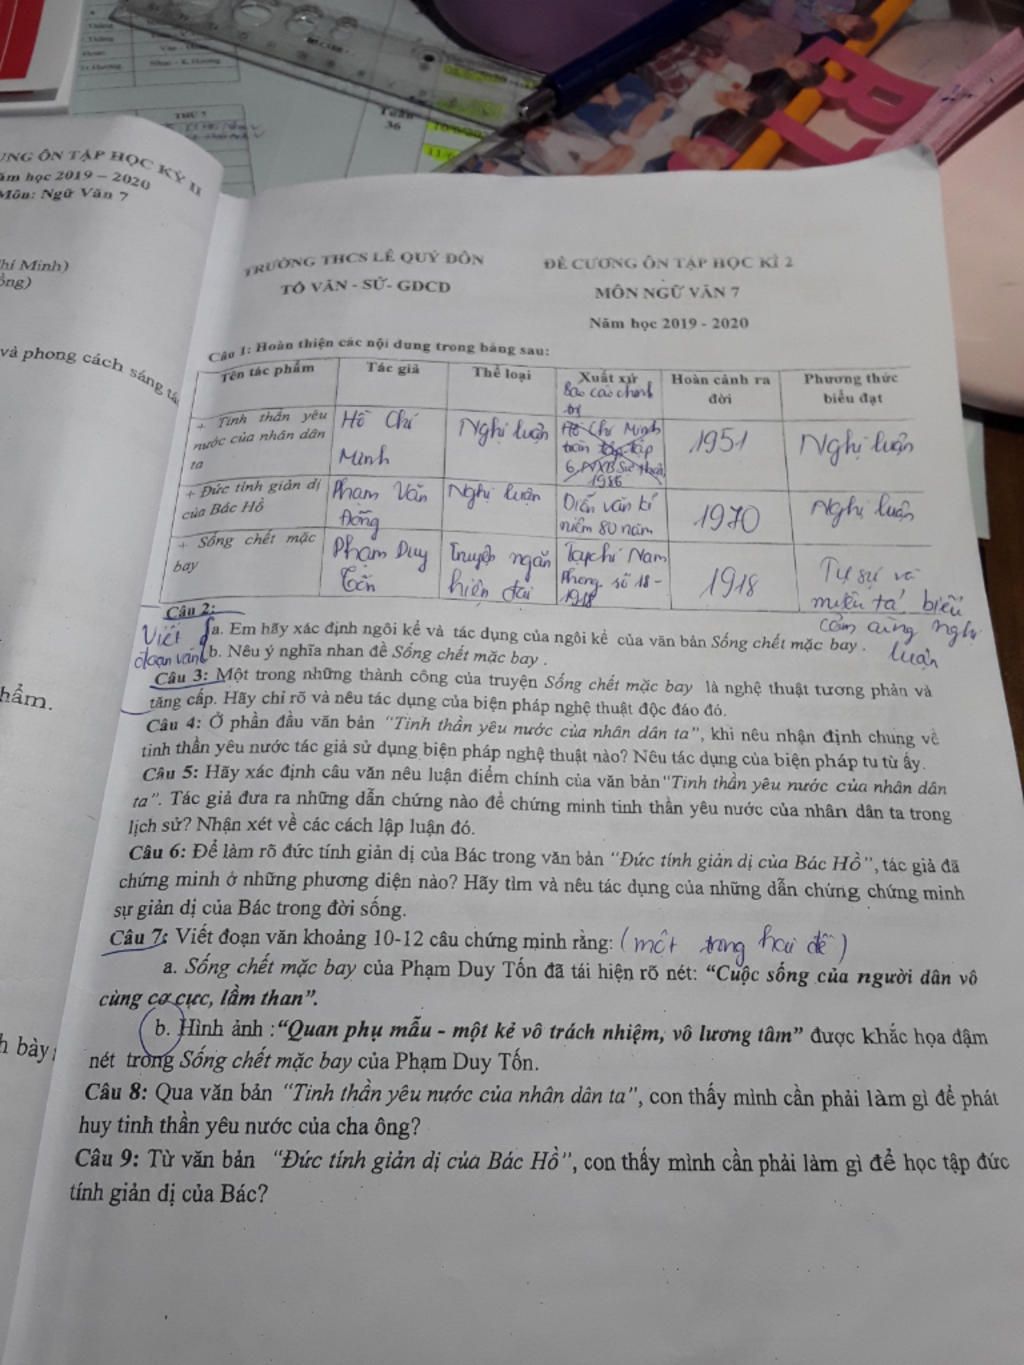 36
THỨ 7
ÔN TẬP HỌC KỲ II
năm học 2019 – 2020
Môn: Ngữ Văn 7
hí Minh)
và phong cách sáng
hẩm.
h bày
TRƯỜNG THCS LÊ QUÝ ĐÔN
ĐỀ CƯƠNG ÔN TẬP HỌC KÌ 2
TỔ VĂN - SỬ- GDCD
MÔN NGỮ VĂN 7
Năm học 2019 - 2020
Câu 1: Hoàn thiện các nội dung trong bảng sau:
Tên tác phẩm Tác giả Thể loại Xuất xứ Hoàn cảnh ra đời Phương thức biểu đạt
+ Tinh thần yêu nước của nhân dân ta
Hồ Chí Minh
Nghị luận
Báo cáo chính trị
Hồ Chí Minh toàn tập 6, NXB Sự thật, 1986
1951
Nghị luận
+ Đức tính giản dị của Bác Hồ
Phạm Văn Đồng
Nghị luận
Diễn văn kỉ niệm 80 năm
1970
Nghị luận
+ Sống chết mặc bay
Phạm Duy Tốn
Truyện ngắn hiện đại
Tạp chí Nam Phong số 18 - 1918
1918
Tự sự và miêu tả, biểu cảm cùng nghị luận
Câu 2:
Viết đoạn văn
a. Em hãy xác định ngôi kể và tác dụng của ngôi kể của văn bản Sống chết mặc bay .
b. Nêu ý nghĩa nhan đề Sống chết mặc bay .
Câu 3: Một trong những thành công của truyện Sống chết mặc bay là nghệ thuật tương phản và
tăng cấp. Hãy chỉ rõ và nêu tác dụng của biện pháp nghệ thuật độc đáo đó.
Câu 4: Ở phần đầu văn bản “Tinh thần yêu nước của nhân dân ta”, khi nêu nhận định chung về
tinh thần yêu nước tác giả sử dụng biện pháp nghệ thuật nào? Nêu tác dụng của biện pháp tu từ ấy.
Câu 5: Hãy xác định câu văn nêu luận điểm chính của văn bản“Tinh thần yêu nước của nhân dân
ta”. Tác giả đưa ra những dẫn chứng nào để chứng minh tinh thần yêu nước của nhân dân ta trong
lịch sử? Nhận xét về các cách lập luận đó.
Câu 6: Để làm rõ đức tính giản dị của Bác trong văn bản “Đức tính giản dị của Bác Hồ”, tác giả đã
chứng minh ở những phương diện nào? Hãy tìm và nêu tác dụng của những dẫn chứng chứng minh
sự giản dị của Bác trong đời sống.
Câu 7: Viết đoạn văn khoảng 10-12 câu chứng minh rằng: (một trong hai đề)
a. Sống chết mặc bay của Phạm Duy Tốn đã tái hiện rõ nét: “Cuộc sống của người dân vô
cùng cơ cực, lầm than”.
b. Hình ảnh :“Quan phụ mẫu - một kẻ vô trách nhiệm, vô lương tâm” được khắc họa đậm
nét trong Sống chết mặc bay của Phạm Duy Tốn.
Câu 8: Qua văn bản “Tinh thần yêu nước của nhân dân ta”, con thấy mình cần phải làm gì để phát
huy tinh thần yêu nước của cha ông?
Câu 9: Từ văn bản “Đức tính giản dị của Bác Hồ”, con thấy mình cần phải làm gì để học tập đức
tính giản dị của Bác?